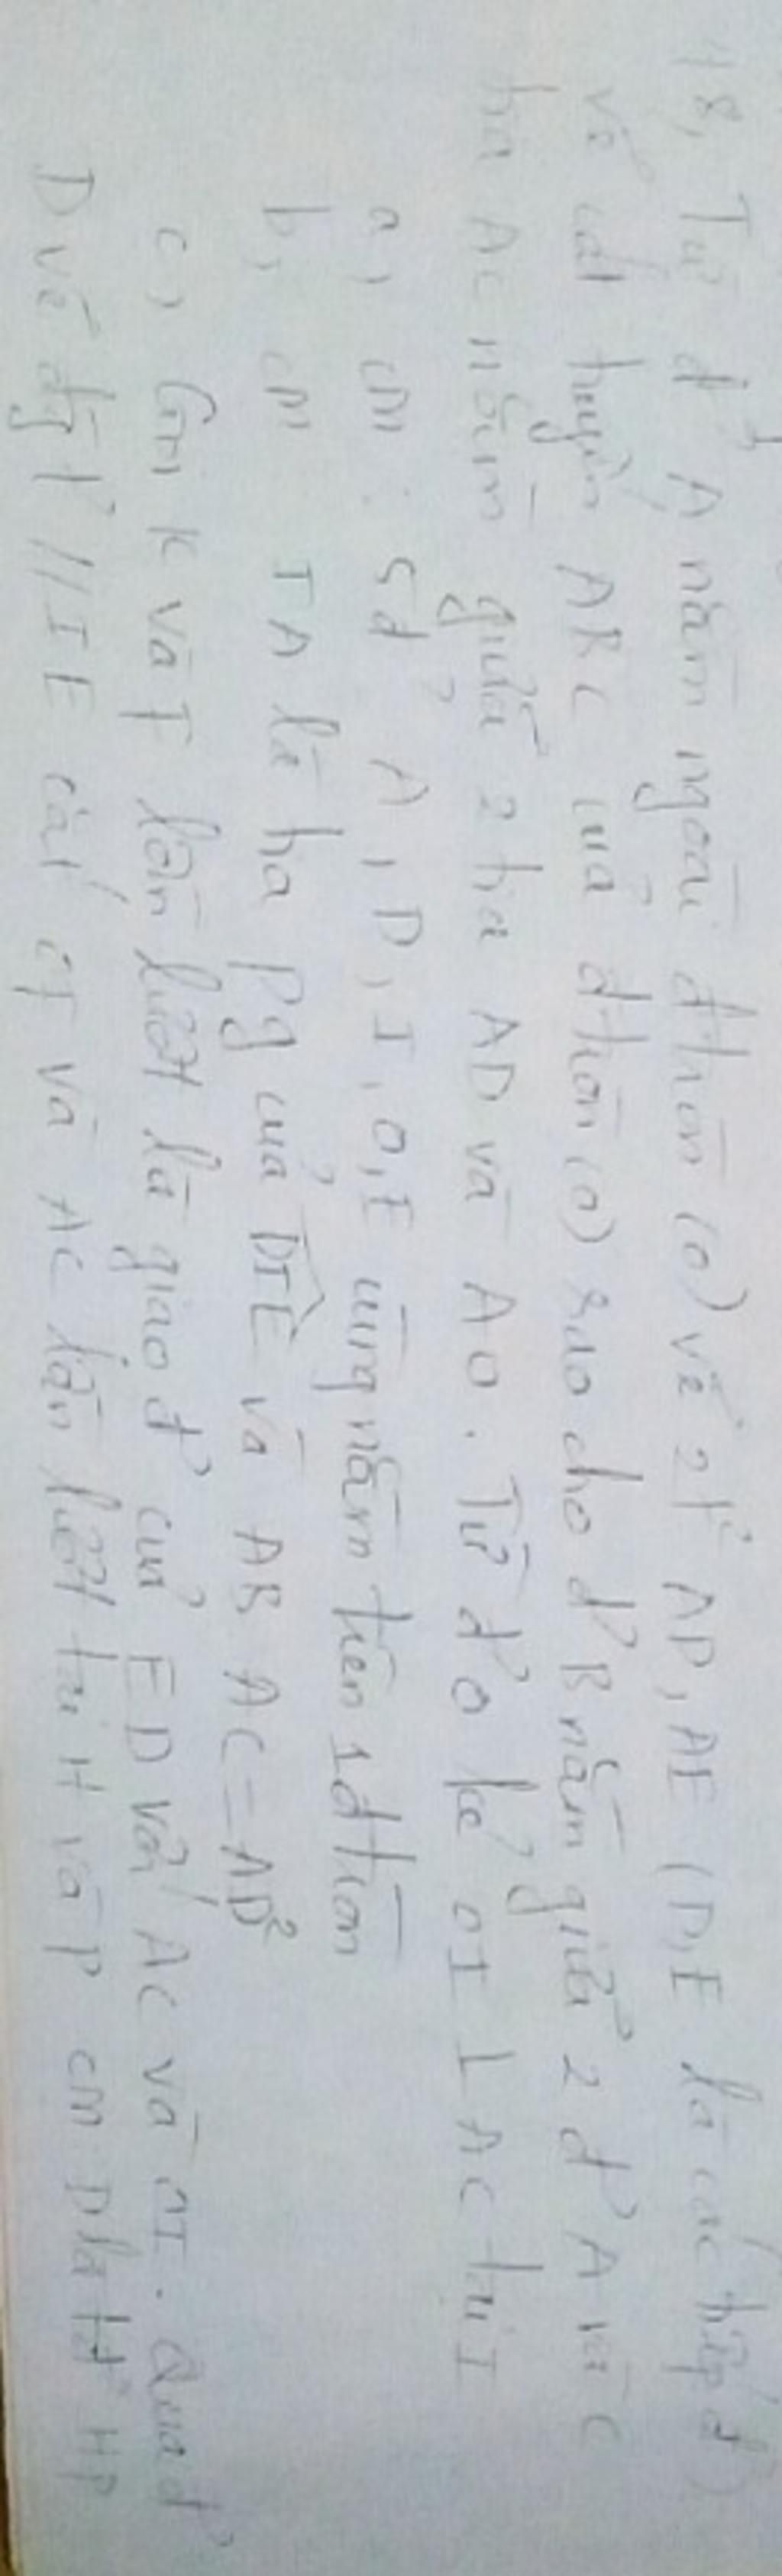 18, Từ đ' A nằm ngoài đtròn (O) vẽ 2t² AD, AE (D, E là các tiếp đ')
vẽ cát tuyến ABC của đtròn (O) sao cho đ' B nằm giữa 2 đ' A và C
tia AC nằm giữa 2 tia AD và AO. Từ đ' O kẻ OI ⊥ AC tại I
a, CM: 5đ' A, D, I, O, E cùng nằm trên 1đtròn
b, CM IA là tia pg của DIE và AB AC = AD²
c, Gọi K và F lần lượt là giao đ' của ED với AC và OI. Qua đ'
D vẽ đg t² // IE cắt OF và AC lần lượt tại H và P CM D là tđ' HP